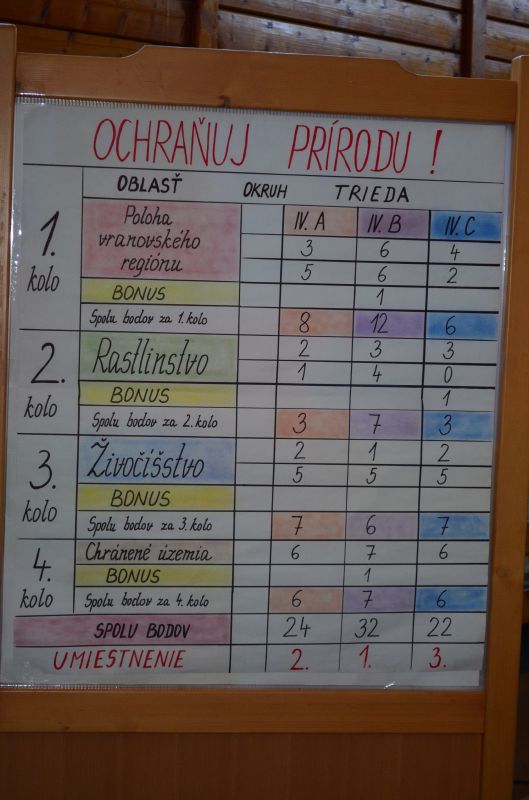 OCHRAŇUJ PRÍRODU !
OBLASŤ OKRUH TRIEDA
1. kolo
Poloha vranovského regiónu
IV. A IV. B IV. C
3 6 4
5 6 2
BONUS 1
Spolu bodov za 1. kolo 8 12 6
2. kolo
Rastlinstvo 2 3 3
1 4 0
BONUS 1
Spolu bodov za 2. kolo 3 7 3
3. kolo
Živočíšstvo 2 1 2
5 5 5
BONUS
Spolu bodov za 3. kolo 7 6 7
4. kolo
Chránené územia 6 7 6
BONUS 1
Spolu bodov za 4. kolo 6 7 6
SPOLU BODOV 24 32 22
UMIESTNENIE 2. 1. 3.